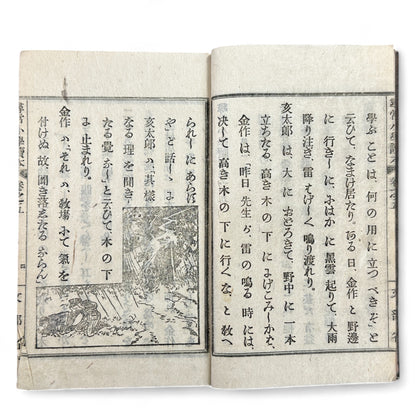 學ぶことは、何の用に立つべきぞ」と
云ひて、なまけ居たり。ある日、金作と野邊
に行きしに、にはかに黒雲起りて、大雨
降り注ぎ、雷はげしく鳴り渡れり。
亥太郎は、大におどろきて、野中に一本
立ちたる、高き木の下ににげこみしかば、
金作は、「昨日、先生が、雷の鳴る時には、
決して、高き木の下に行くな、と教へ
られしにあらず
や」と話しし
に、亥太郎は、「其様
なる理を聞き
たる覺なし」と云ひて、木の下
に止まれり。
金作は、「それは、教場にて氣を
付けぬ故、聞き落したるならん」
尋常小學讀本 卷之五
文部省